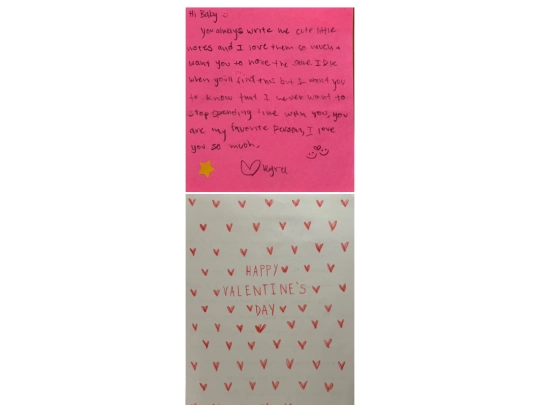 Hi Baby
You always write me cute little
notes and I love them so much I
want you to have the same. I Idk
when you'll find this but I want you
to know that I never want to
stop spending time with you, you
are my favorite person, I love
you so much.
HAPPY
VALENTINE'S
DAY